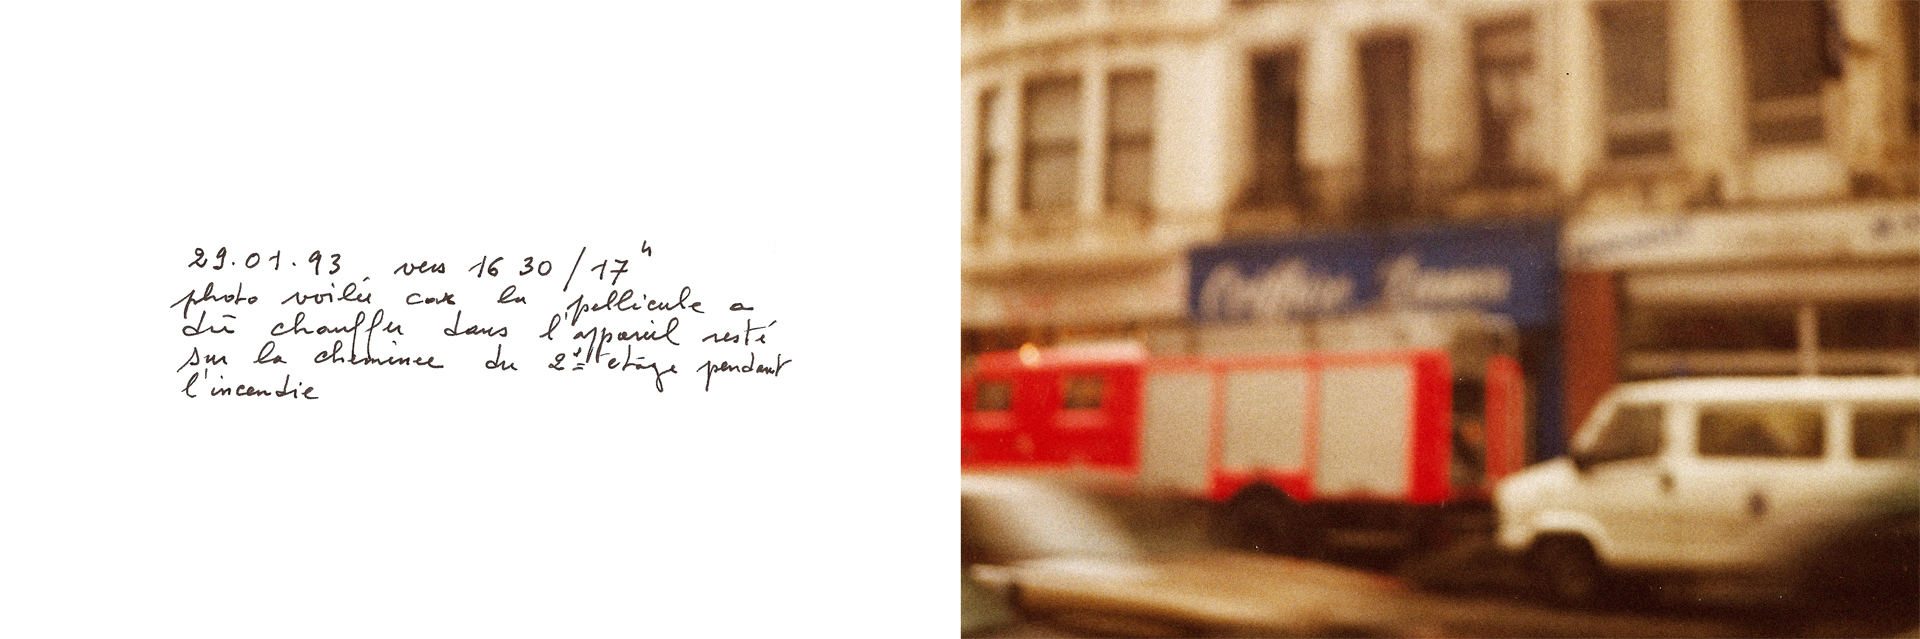 29.01.93 vers 16 30/17h
photo voilée car la pellicule a
dû chauffer dans l'appareil resté
sur la cheminée du 2e étage pendant
l'incendie